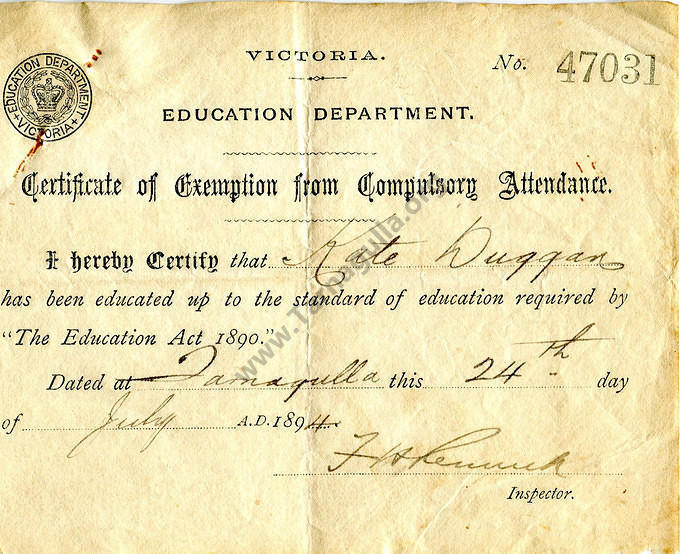 VICTORIA.
No. 47031
EDUCATION DEPARTMENT
VICTORIA
EDUCATION DEPARTMENT.
Certificate of Exemption from Compulsory Attendance.
I hereby Certify that Kate Duggan
has been educated up to the standard of education required by
"The Education Act 1890."
Dated at Tarnagulla this 24th day
of July A.D. 1894
F H Rennick
Inspector.
www.Tarnagulla.org